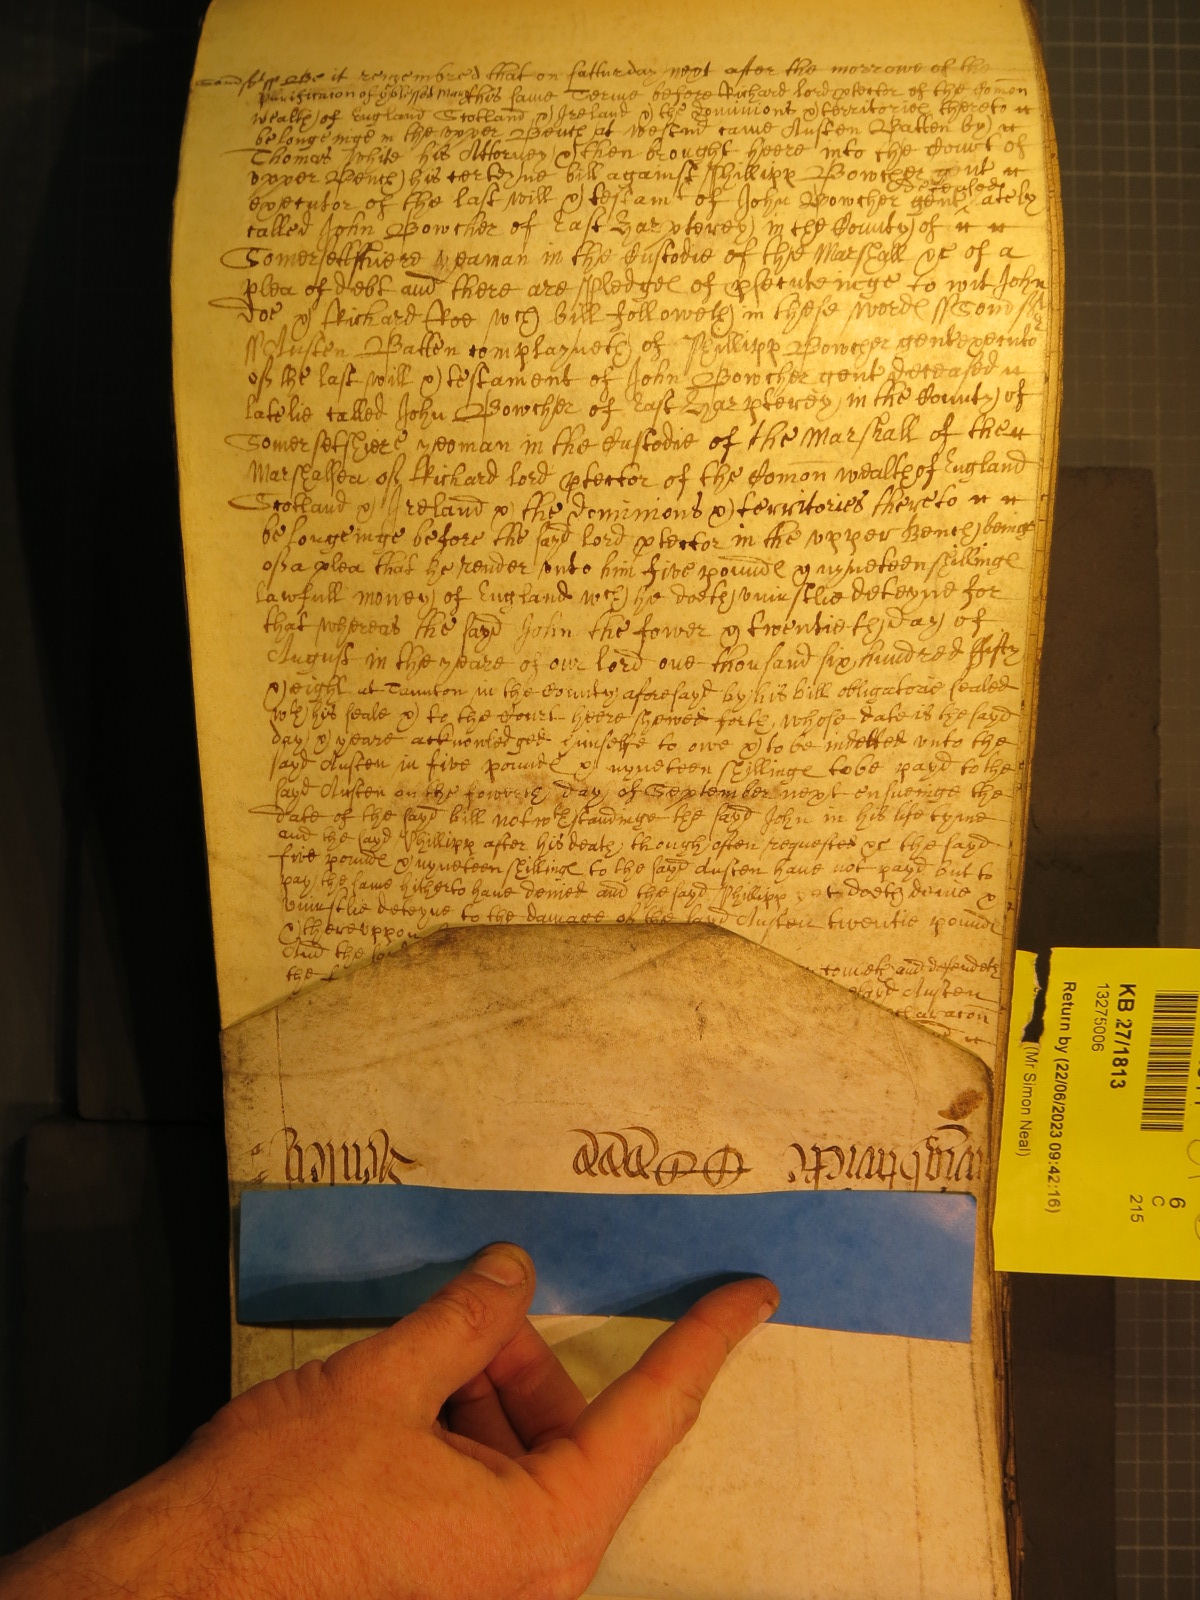 Be it remembred that on Satturday next after the morrowe of the
purificacion of this same Terme before Richard lord ptector of the Comon
wealth of England Scotland & Ireland & the dominions & territories thereto
belongeinge in the upper Bench at Westm came Austen Batten by
Thomas White his Attorney & then brought heere into the Court of
upper Bench his certeyne bill against Phillipp Bowcher gent
executor of the last will & testamt of John Bowcher gent deceased lately
called John Bowcher of East Harpterey in the County of
Somersettsheere yeaman in the Custodie of the Marshall &c of a
plea of debt and there are pledges of psecuteinge to wit John
Doe & Richard Roe wch bill followeth in these words ss Som ss
ss Austen Batten complayneth of Phillipp Bowcher gent executor
of the last will & testament of John Bowcher gent deceased
latelie called John Bowcher of East Harpterey in the County of
Somersetshiere yeoman in the Custodie of the Marshall of the
Marshallsea of Richard lord ptector of the Comon wealth of England
Scotland & Ireland & the dominions & territories thereto
belongeinge before the sayd lord ptector in the upper Bench beinge
of a plea that he render unto him five pounds & nyneteen shillings
lawfull money of England wch he doeth uniustlie deteyne for
that whereas the sayd John the fower & twentieth day of
August in the yeare of our lord one thousand six hundred ffifty
& eight at Taunton in the County aforesayd by his bill obligatorie sealed
wth his seale & to the Court heere shewed forth whose date is the sayd
day & yeare acknowledged himselfe to owe & to be indetted unto the
sayd Austen in five pounds & nyneteen shillings to be payd to the
sayd Austen on the fowerth day of September next ensueinge the
date of the sayd bill notwthstandinge the sayd John in his life tyme
and the sayd Phillipp after his death though often requested &c the sayd
five pounds & nyneteen shillings to the sayd Austen have not payd but to
pay the same hitherto have denied and the sayd Phillipp yet doeth denie &
uniustlie deteyne to the damage of the sayd Austen twentie pounds
& thereuppon
And the sayd cometh and defendeth
the sayd Austen
KB 27/1813
13275006
Return by (22/06/2023 09:42:16)
(Mr Simon Neal)
6
C
215